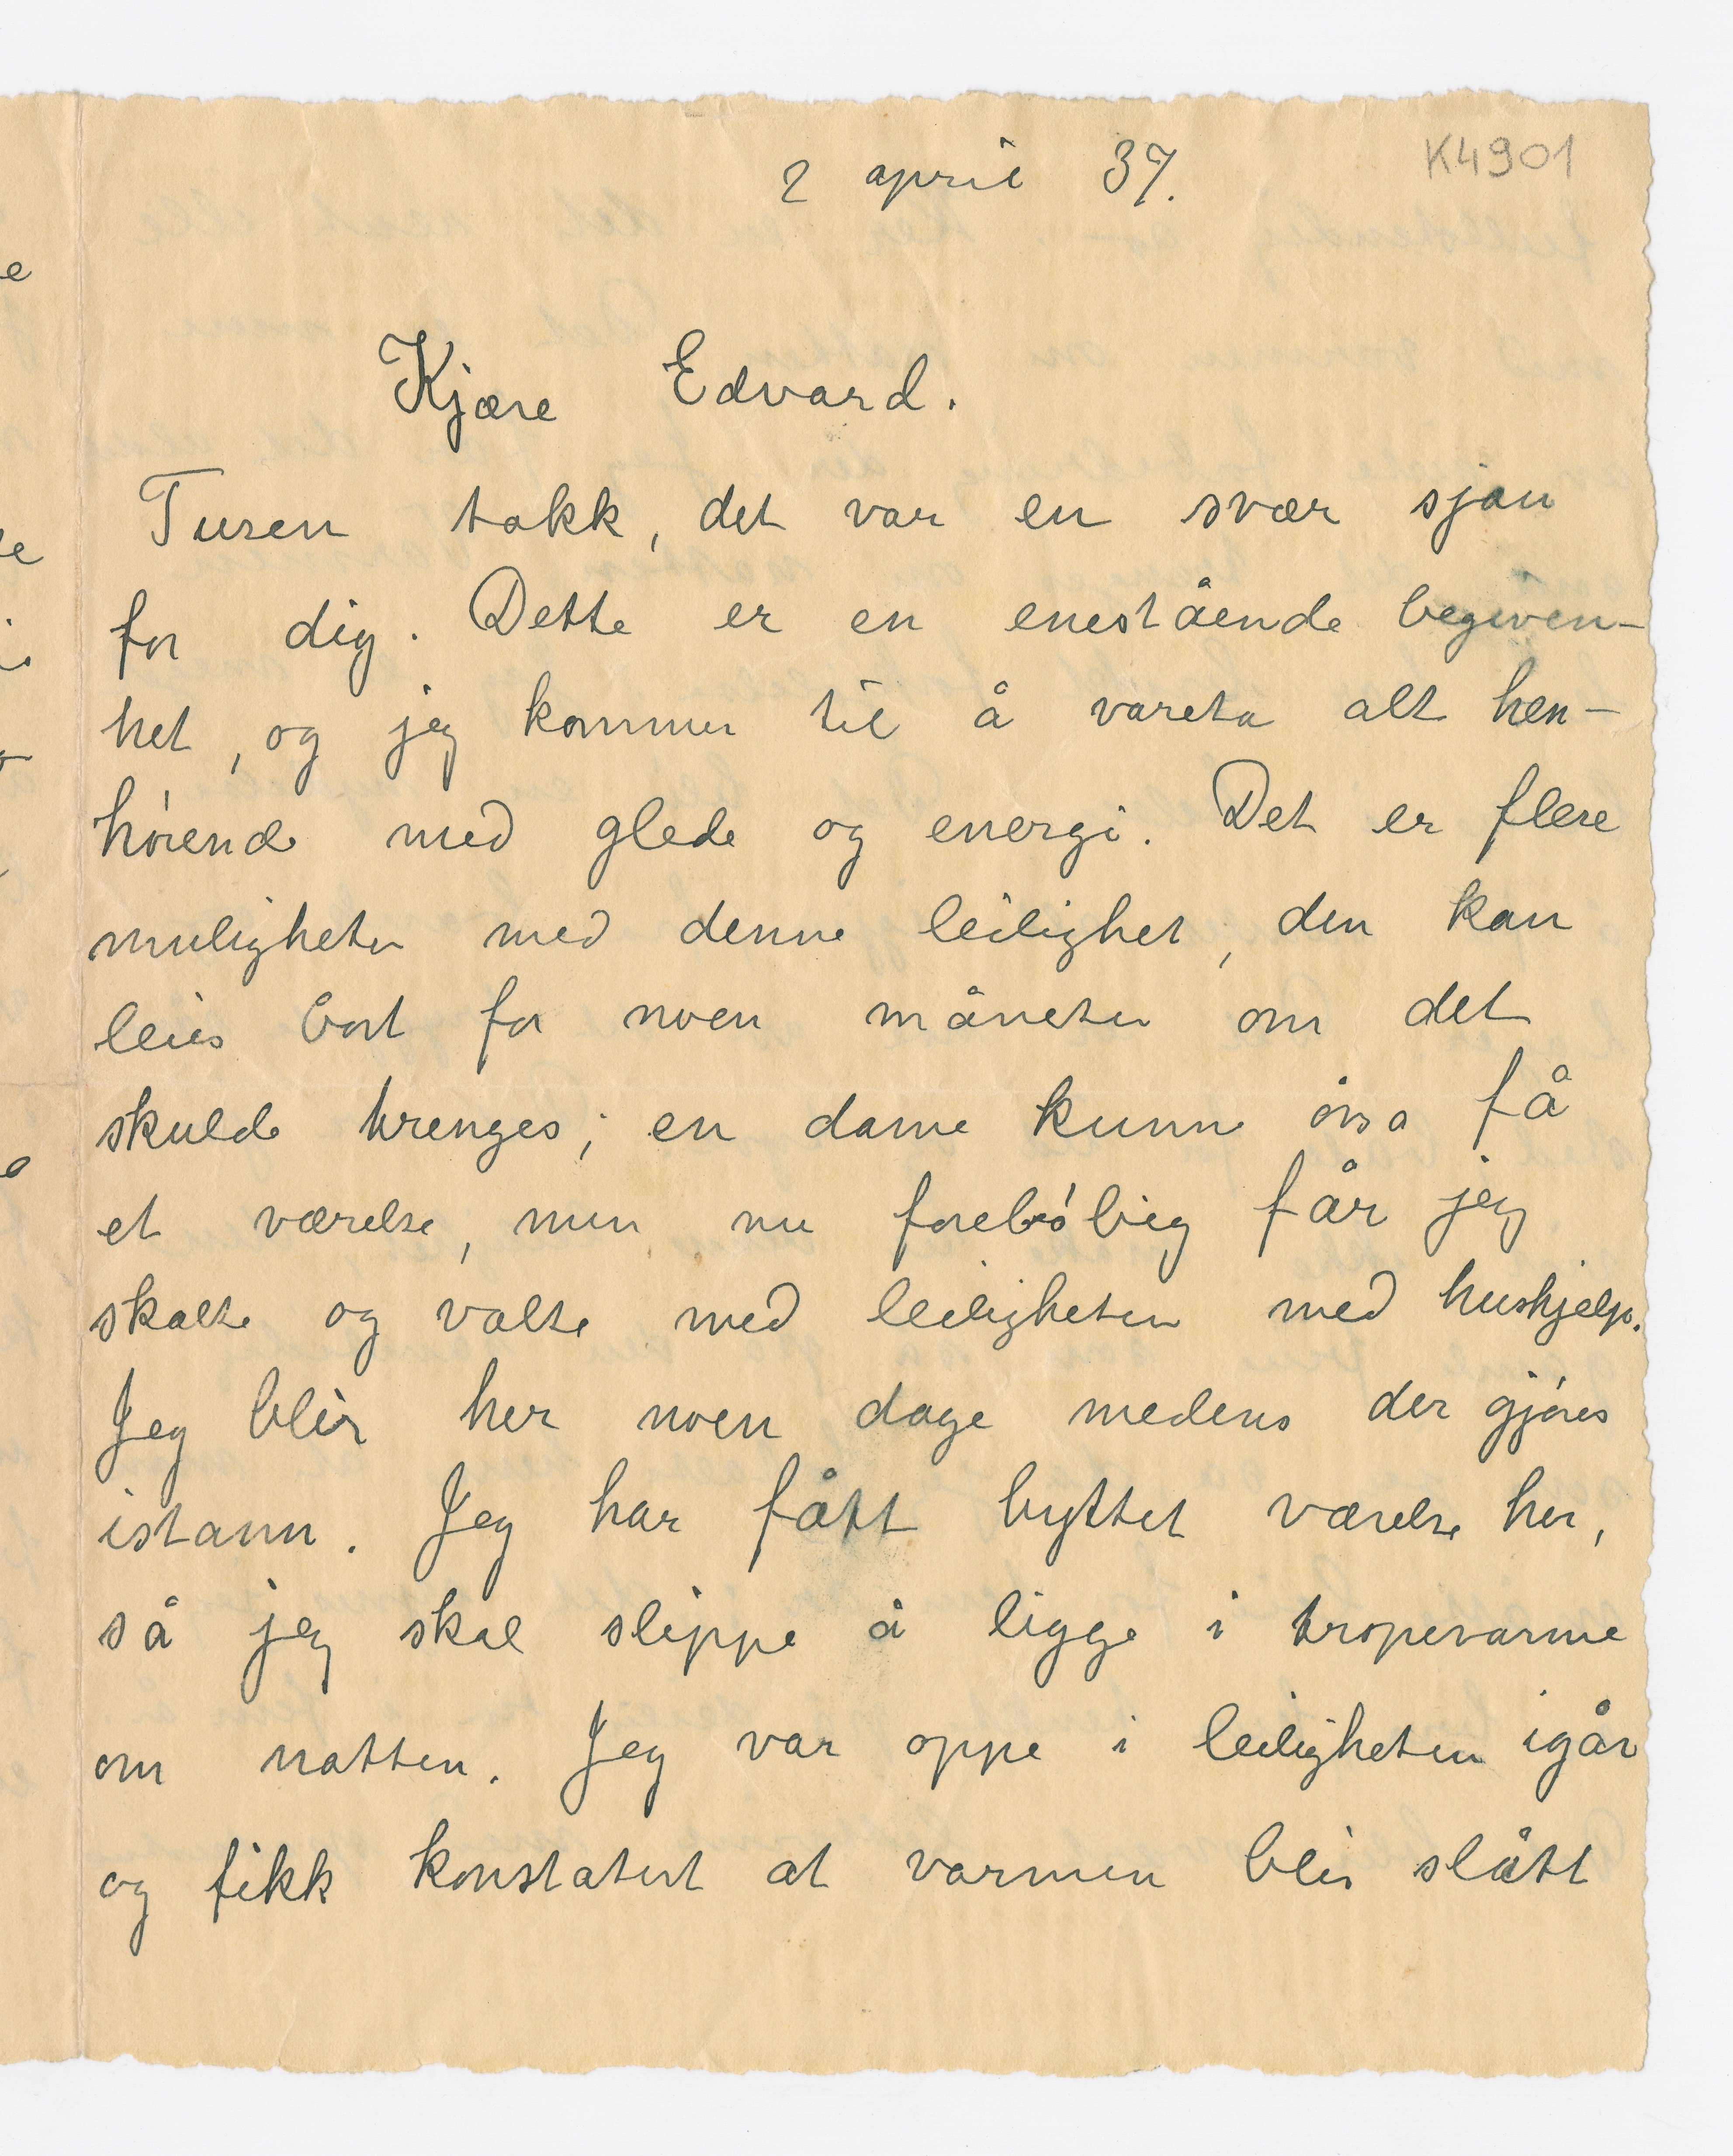 K4901
2 april 37.
Kjære Edvard.
Tusen takk, det var en svær sjau
for dig. Dette er en enestående begiven-
het, og jeg kommer til å vareta alt hen-
hørende med glede og energi. Det er flere
muligheter med denne leilighet, den kan
leies bort for noen måneter om det
skulde trenges; en dame kunne osså få
et værelse, men nu foreløbig får jeg
skalte og valte med leiligheten med hushjelp.
Jeg blir her noen dage medens der gjøres
istann. Jeg har fått byttet værelse her,
så jeg skal slippe å ligge i tropevarme
om natten. Jeg var oppe i leiligheten igår
og fikk konstatert at varmen blir slått